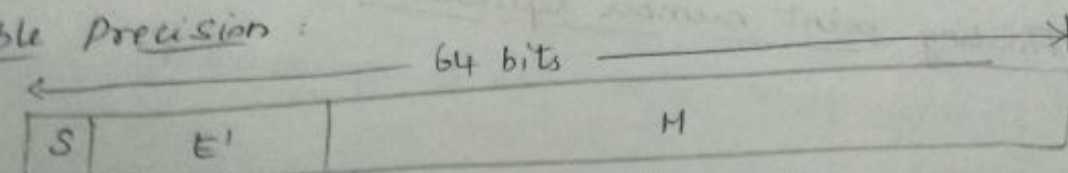 ble Precision :
64 bits
S E' M